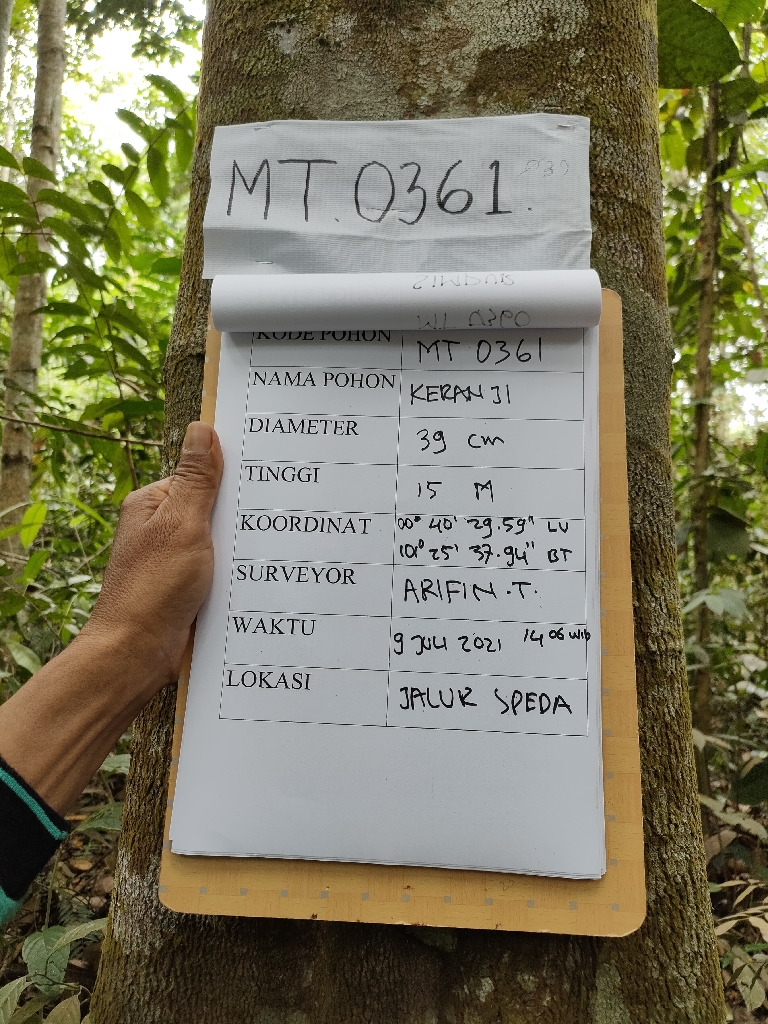 MT. 0361.
KODE POHON MT 0361
NAMA POHON KERANJI
DIAMETER 39 cm
TINGGI 15 M
KOORDINAT 00° 40' 29.59" LU
101° 25' 37.94" BT
SURVEYOR ARIFIN.T.
WAKTU 9 JULI 2021 14 06 WIB
LOKASI JALUR SPEDA